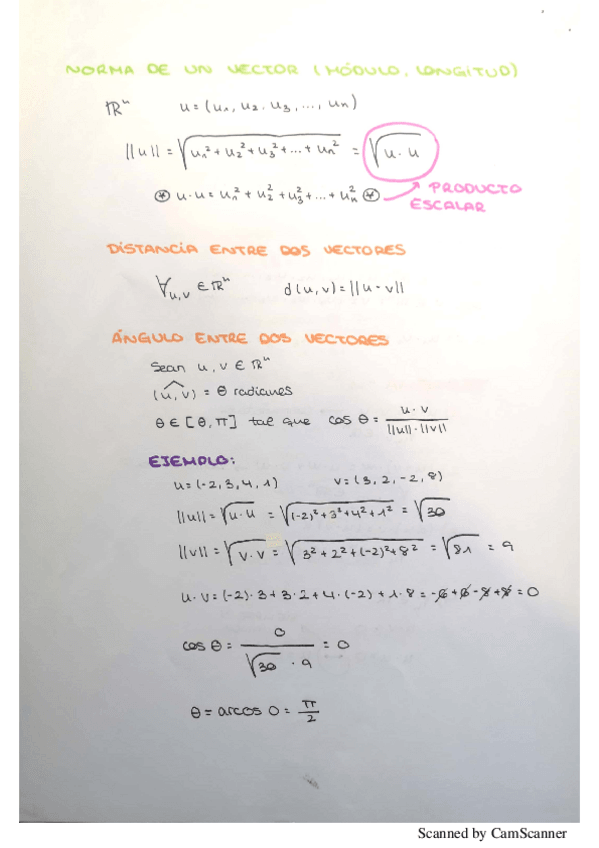 NORMA DE UN VECTOR (MÓDULO, LONGITUD)
ℝⁿ u = (u₁, u₂, u₃, ..., uₙ)
||u|| = √(u₁² + u₂² + u₃² + ... + uₙ²) = √(u · u)
⊛ u · u = u₁² + u₂² + u₃² + ... + uₙ² ⊛ PRODUCTO
ESCALAR
DISTANCIA ENTRE DOS VECTORES
∀u,v ∈ ℝⁿ d(u,v) = ||u - v||
ÁNGULO ENTRE DOS VECTORES
Sean u, v ∈ ℝⁿ
(u, v) = θ radianes
θ ∈ [θ, π] tal que cos θ = u · v / ||u|| · ||v||
EJEMPLO:
u = (-2, 3, 4, 1) v = (3, 2, -2, 8)
||u|| = √(u · u) = √((-2)² + 3² + 4² + 1²) = √30
||v|| = √(v · v) = √(3² + 2² + (-2)² + 8²) = √81 = 9
u · v = (-2) · 3 + 3 · 2 + 4 · (-2) + 1 · 8 = -6 + 6 - 8 + 8 = 0
cos θ = 0 / √30 · 9 = 0
θ = arcos 0 = π/2
Scanned by CamScanner